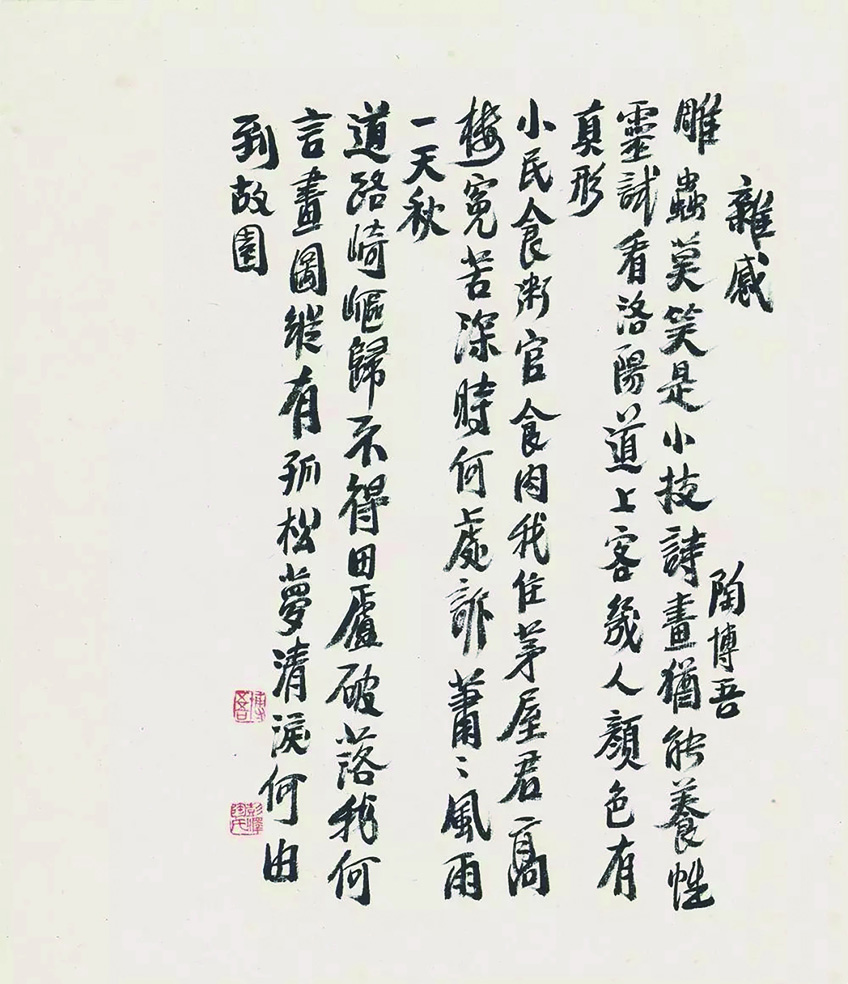 雜感 陶博吾
雕蟲莫笑是小技詩畫猶能養性
靈試看洛陽道上客幾人顏色有
真形
小民食粥官食肉我住茅屋君高
樓冤苦深時何處訴蕭〻風雨
一天秋
道路崎嶇歸不得田廬破落我何
言畫圖縱有孤松夢清淚何由
到故園
博吾
彭澤陶氏